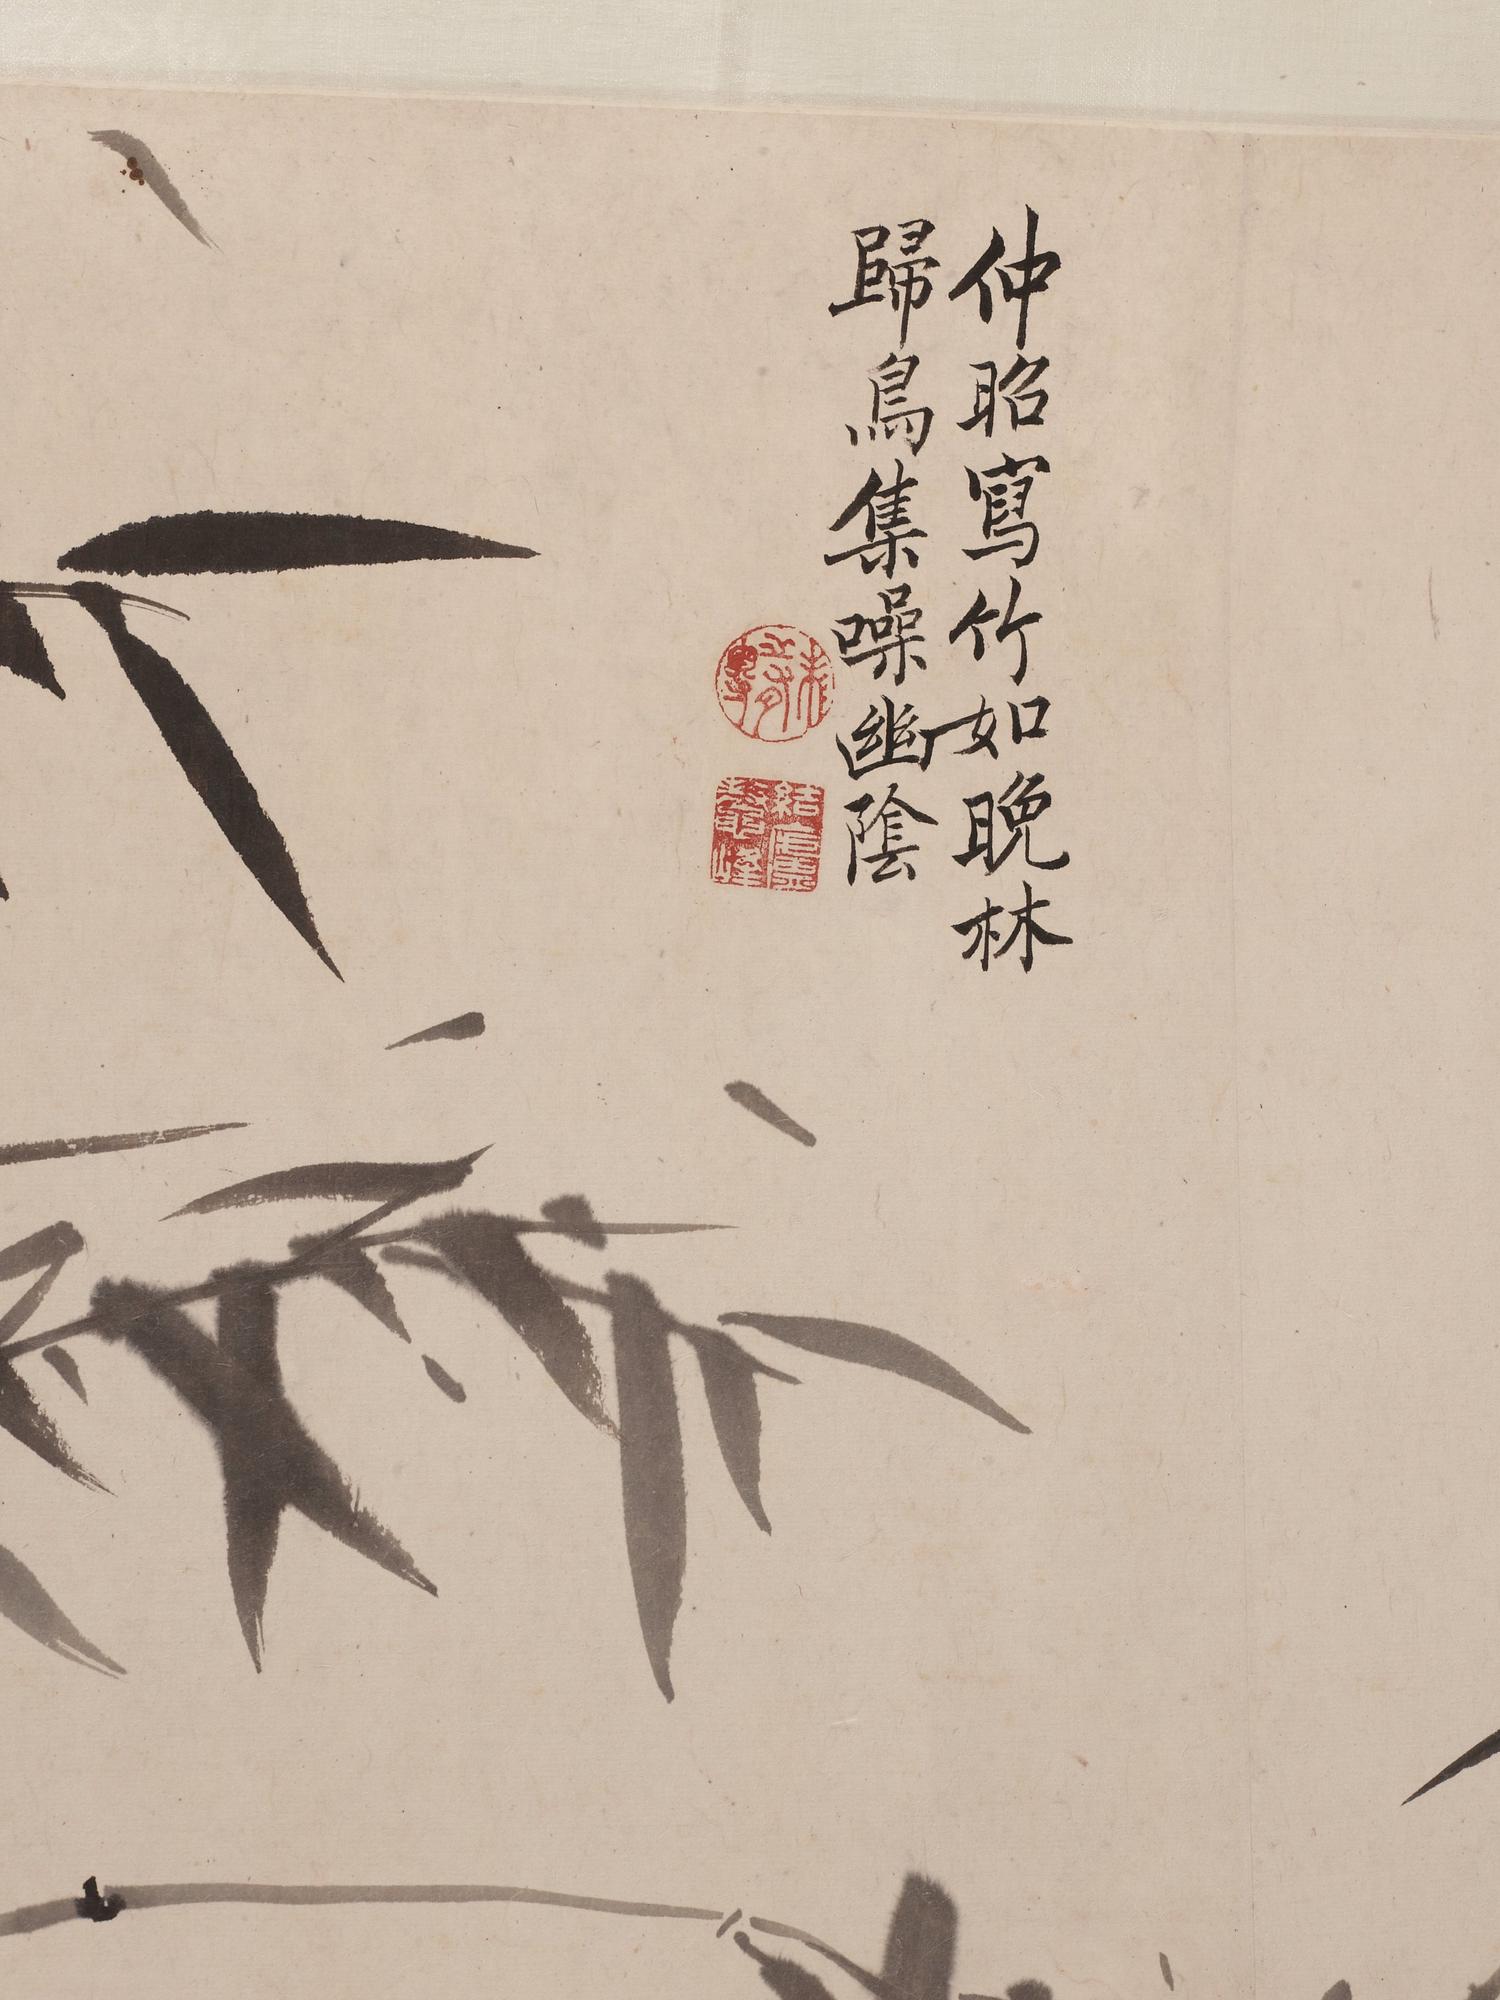 仲昭寫竹如晚林
歸鳥集噪幽陰